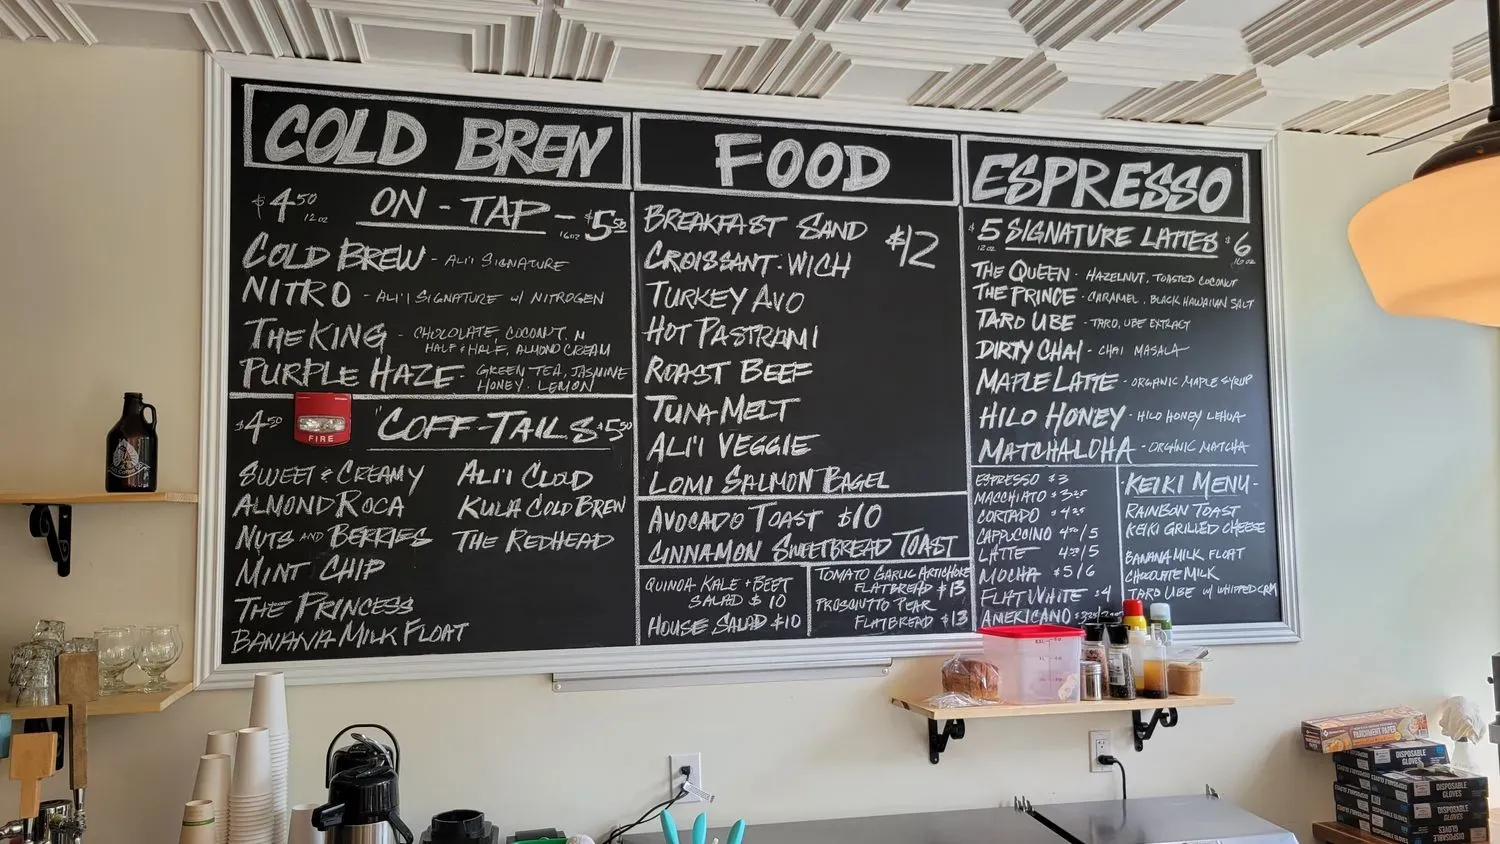 COLD BREW
$4.50 12 oz ON-TAP - 16 oz $5.50
COLD BREW - ALI'I SIGNATURE
NITRO - ALI'I SIGNATURE W/ NITROGEN
THE KING - CHOCOLATE, COCONUT, M
HALF & HALF, ALMOND CREAM
PURPLE HAZE - GREEN TEA, JASMINE
HONEY - LEMON
$4.50 "COFF-TAILS $5.50
FIRE
SWEET & CREAMY
ALMOND ROCA
NUTS AND BERRIES
MINT CHIP
THE PRINCESS
BANANA MILK FLOAT
ALI'I CLOUD
KULA COLD BREW
THE REDHEAD
FOOD
BREAKFAST SAND $12
CROISSANT-WICH
TURKEY AVO
HOT PASTRAMI
ROAST BEEF
TUNA MELT
ALI'I VEGGIE
LOMI SALMON BAGEL
AVOCADO TOAST $10
CINNAMON SWEETBREAD TOAST
QUINOA KALE + BEET
SALAD $10
HOUSE SALAD $10
TOMATO GARLIC ARTICHOKE
FLATBREAD $13
PROSCIUTTO PEAR
FLATBREAD $13
ESPRESSO
$5 12 oz SIGNATURE LATTES $6 16 oz
THE QUEEN - HAZELNUT, TOASTED COCONUT
THE PRINCE - CARAMEL, BLACK HAWAIIAN SALT
TARO UBE - TARO, UBE EXTRACT
DIRTY CHAI - CHAI MASALA
MAPLE LATTE - ORGANIC MAPLE SYRUP
HILO HONEY - HILO HONEY LEHUA
MATCHALOHA - ORGANIC MATCHA
ESPRESSO $3
MACCHIATO $3.25
CORTADO $4.25
CAPPUCCINO 4.50/5
LATTE 4.50/5
MOCHA $5/6
FLAT WHITE $4
AMERICANO
-KEIKI MENU-
RAINBOW TOAST
KEIKI GRILLED CHEESE
BANANA MILK FLOAT
CHOCOLATE MILK
TARO UBE W/ WHIPPED CRM
PARCHMENT PAPER
DISPOSABLE GLOVES
DISPOSABLE
GLOVES
DISPOSABLE
GLOVES
DISPOSABLE
GLOVES